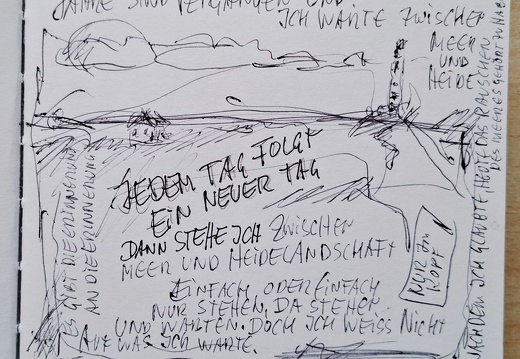 JAHRE SIND VERGANGEN UND
ICH WARTE ZWISCHEN
MEER
UND
HEIDE.
JEDEM TAG FOLGT
EIN NEUER TAG
DANN STEHE ICH ZWISCHEN
MEER UND HEIDELANDSCHAFT
EINFACH ODER EINFACH
NUR STEHEN, DA STEHEN
UND WARTEN. DOCH ICH WEISS NICHT
AUF WAS ICH WARTE.
ES GIBT DIE ERINNERUNG
AN DIE ERINNERUNG
NUR IM
KOPF
NACHDEM ICH GLAUBTE, HEUTE DAS RAUSCHEN
DES MEERES GEHÖRT ZU HAB